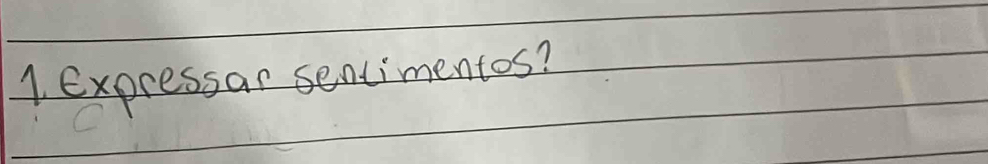 1. Expressar sentimentos?